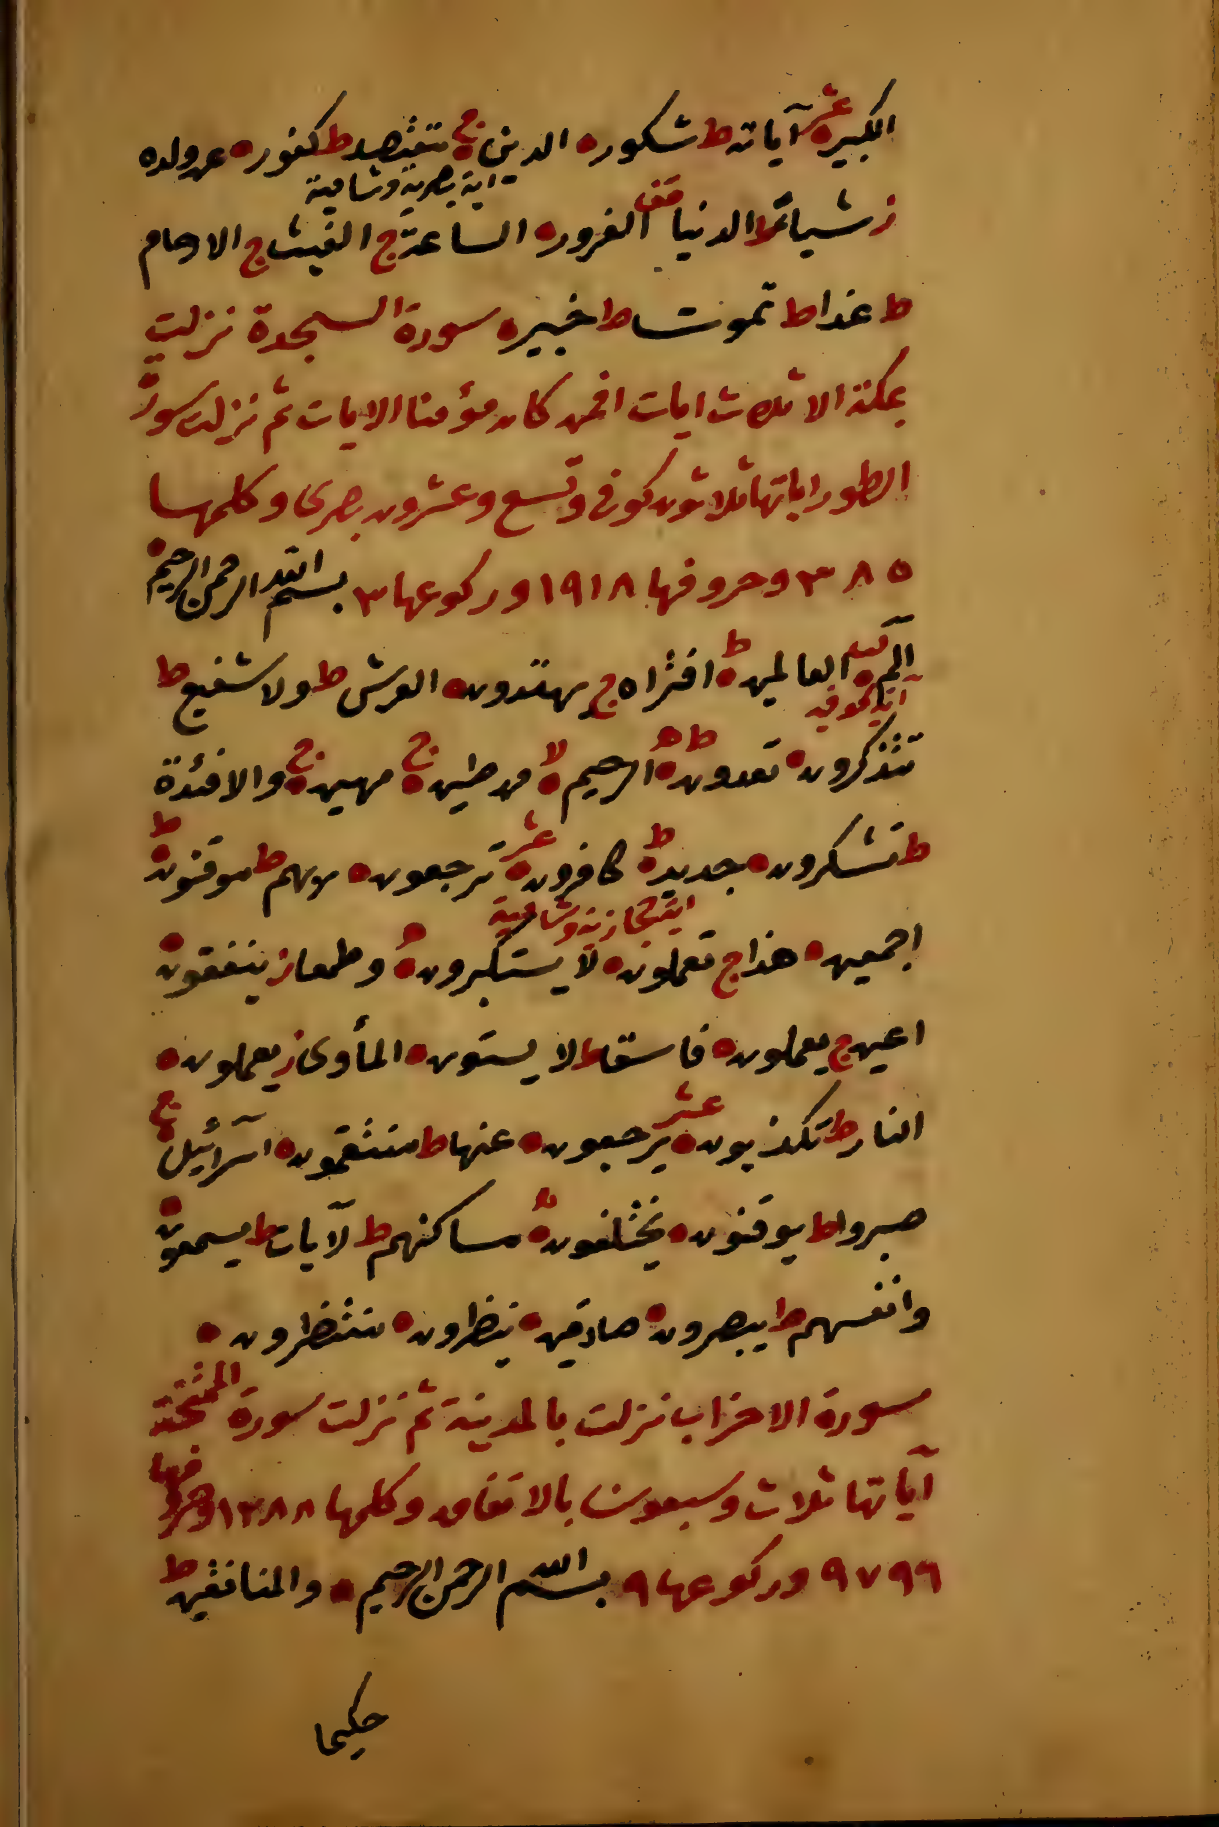 الكبيره عشر آياته ط شكوره الدين ه ج مقتصد ط كفوره عن ولده
اية بصرية وشامية
ز شيئا الدنيا قف الغروره الساعة ج الغيث ج الارحام
ط غدا ط تموت ط خبيره سورة السجدة نزلت
بمكة الا ثلاث ايات افمن كان مؤمنا الايات ثم نزلت سورة
الطور اياتها ثلاثون كوفى وتسع وعشرون بصرى وكلمها
٣٨٥ وحروفها ١٩١٨ وركوعها ٣ بسم الله الرحمن الرحيم
الم ه العالمين ه ط افتراه ج يهتدون ه العرش ط ولا شفيع ط
آية كوفية
تتذكرون ه تعدون ه ط الرحيم ه لا من طين ه ج مهين ه ج والافئدة
ط تشكرون ه جديد ه ط كافرون ه عشر ترجعون ه ربهم ط موقنون ه ط
اية حجازية وشامية
اجمعين ه هذا ج تعملون ه لا يستكبرون ه وطمعا ز ينفقون ه
اعين ج يعملون ه فاسقا ط لا يستون ه المأوى ز يعملون ه
النار ط تكذبون ه عشر يرجعون ه عنها ط منتقمون ه اسرآئيل ه ج
صبروا ط يوقنون ه يختلفون ه مساكنهم ط لآيات ط يسمعون ه
وانفسهم ط يبصرون ه صادقين ه ينظرون ه منتظرون ه
سورة الاحزاب نزلت بالمدينة ثم نزلت سورة الممتحنة
آياتها ثلاث وسبعون بالاتفاق وكلمها ١٢٨٨ وحروفها
٩٧٩٦ وركوعها ٩ بسم الله الرحمن الرحيم ه والمنافقين ط
حكيما